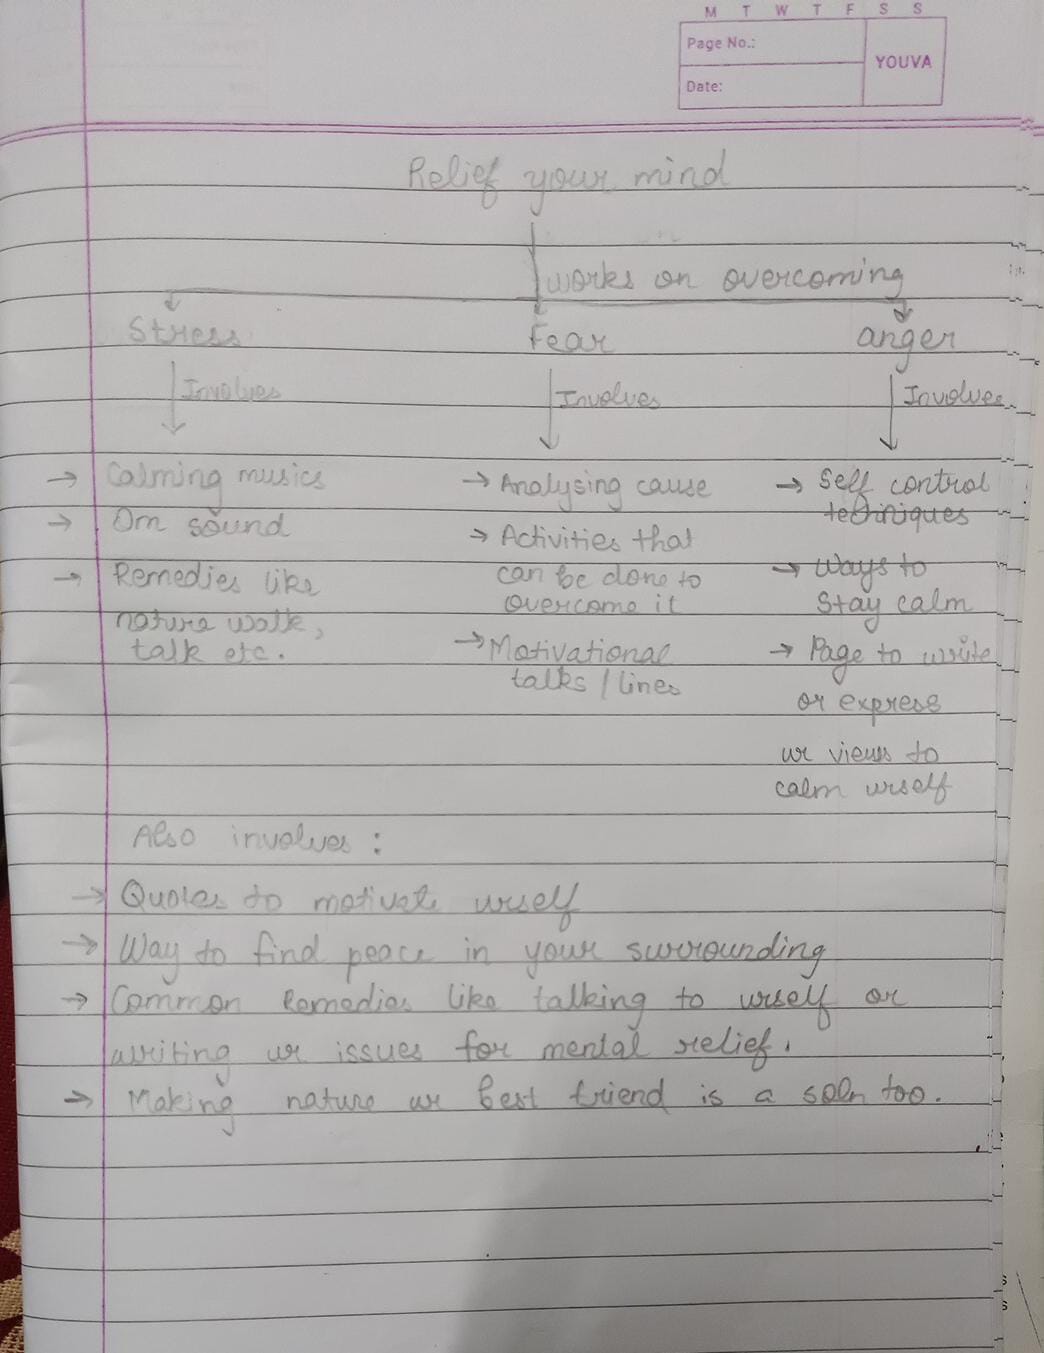 M T W T F S S
Page No.:
YOUVA
Date:
Relief your mind
works on overcoming
Stress
Fear
anger
Involves
Involves
Involves
→ Calming musics
→ Om sound
→ Remedies like
nature walk,
talk etc.
→ Analysing cause
→ Activities that
can be done to
overcome it
→ Motivational
talks / lines
→ Self control
techniques
→ Ways to
stay calm
→ Page to write
or express
ur views to
calm urself
Also involves :
→ Quotes to motivate urself
→ Way to find peace in your surrounding
→ Common Remedies like talking to urself or
writing ur issues for mental relief.
→ Making nature ur best friend is a soln too.